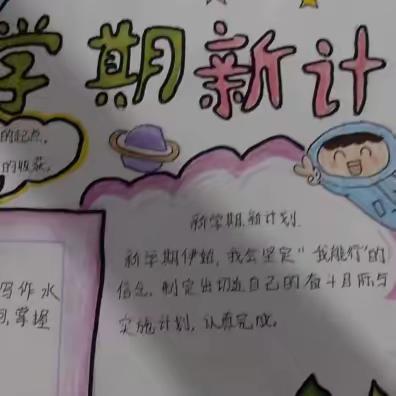 学期新计
的起点,
的收获,
新学期.新计划.
新学期伊始,我会坚定“我能行”的
信念.制定出切近自己的奋斗目标与
实施计划,认真完成。
写作水
掌握